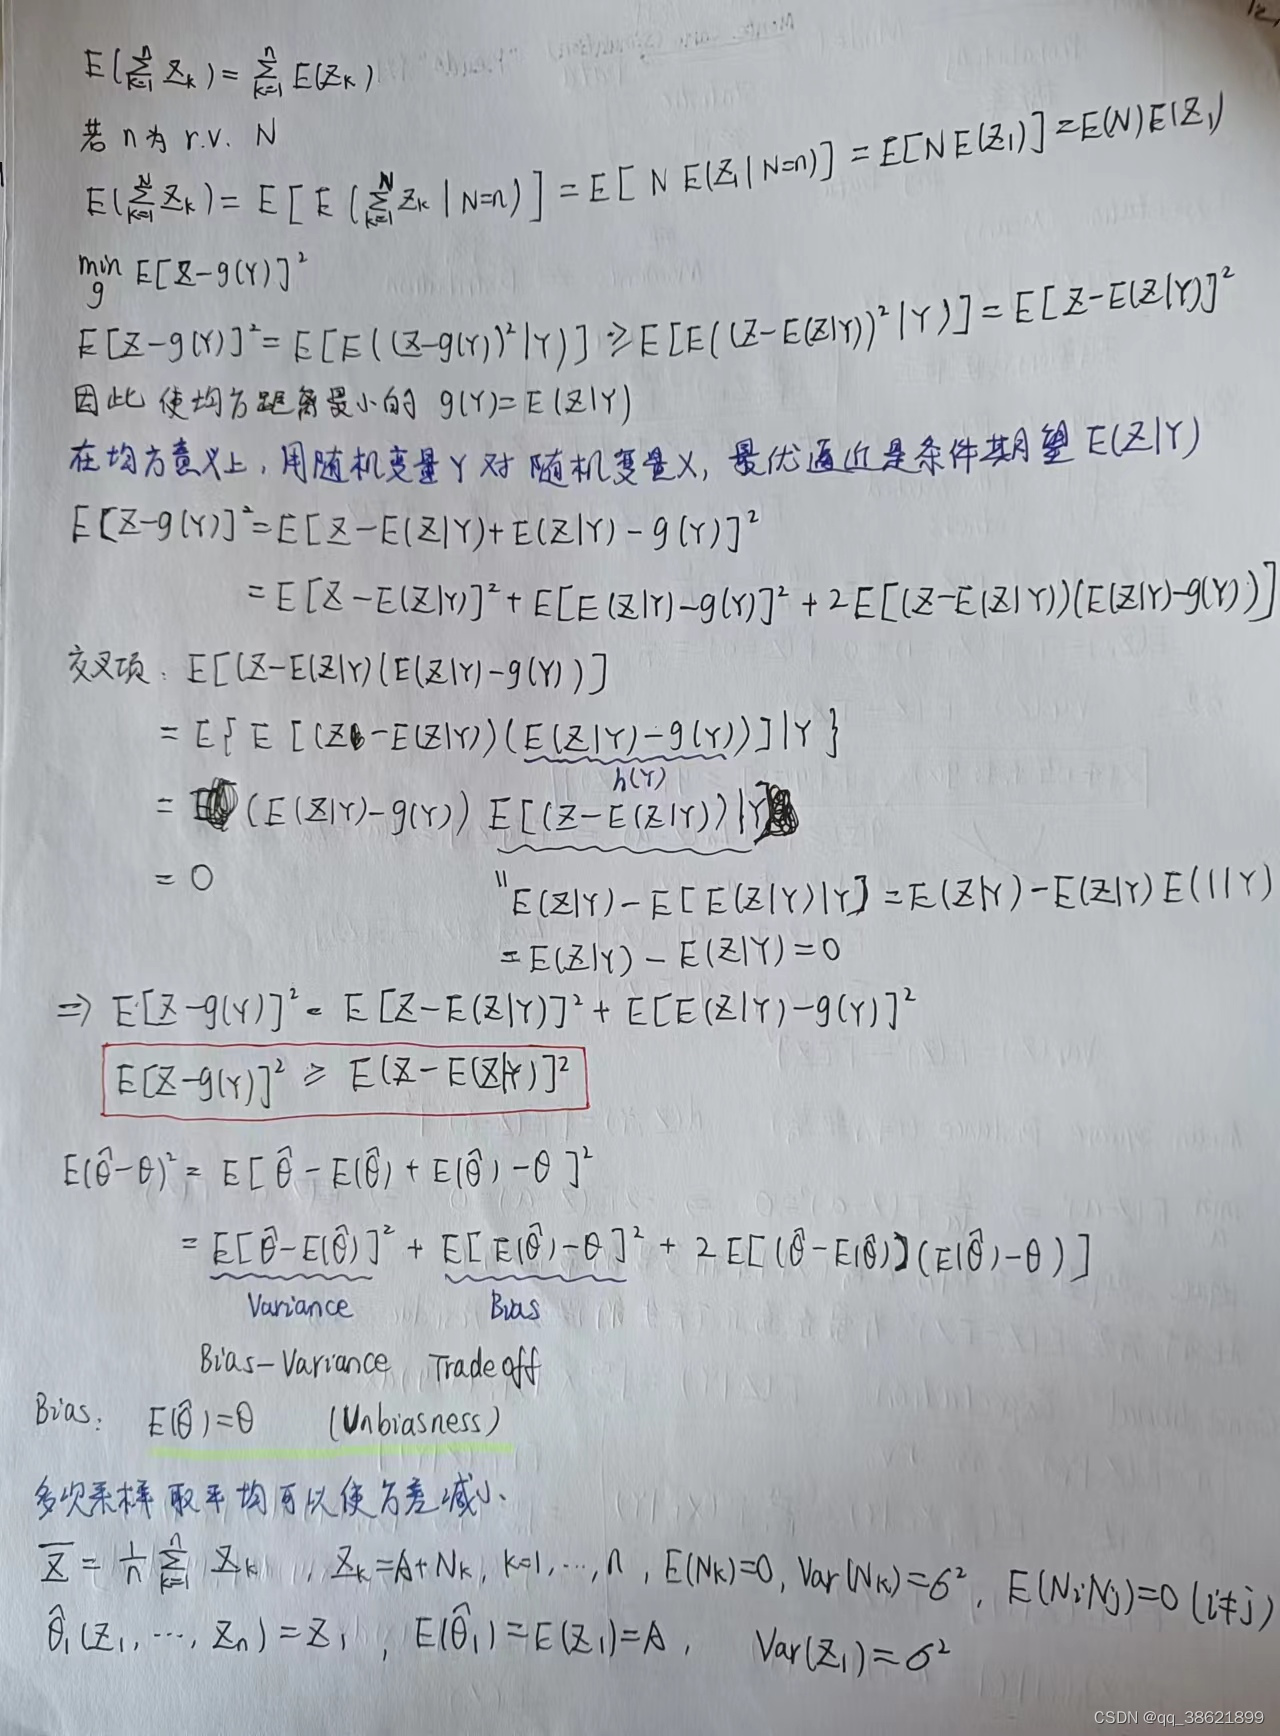 12.
E(∑_{k=1}^{n} Z_k) = ∑_{k=1}^{n} E(Z_k)
若 n 为 r.v. N
E(∑_{k=1}^{N} Z_k) = E[E(∑_{k=1}^{N} Z_k | N=n)] = E[N E(Z_1 | N=n)] = E[N E(Z_1)] = E(N)E(Z_1)
min_g E[Z-g(Y)]²
E[Z-g(Y)]² = E[E((Z-g(Y))²|Y)] ≥ E[E((Z-E(Z|Y))²|Y)] = E[Z-E(Z|Y)]²
因此 使均方距离最小的 g(Y)=E(Z|Y)
在均方意义上，用随机变量Y对随机变量X，最优逼近是条件期望 E(Z|Y)
E[Z-g(Y)]² = E[Z-E(Z|Y)+E(Z|Y)-g(Y)]²
= E[Z-E(Z|Y)]² + E[E(Z|Y)-g(Y)]² + 2E[(Z-E(Z|Y))(E(Z|Y)-g(Y))]
交叉项: E[(Z-E(Z|Y)(E(Z|Y)-g(Y))]
= E{E[(Z-E(Z|Y))(E(Z|Y)-g(Y))]|Y}
h(Y)
= E (E(Z|Y)-g(Y)) E[(Z-E(Z|Y))|Y]
= 0
" E(Z|Y)-E[E(Z|Y)|Y] = E(Z|Y)-E(Z|Y)E(1|Y)
= E(Z|Y)-E(Z|Y)=0
⇒ E[Z-g(Y)]² = E[Z-E(Z|Y)]² + E[E(Z|Y)-g(Y)]²
E[Z-g(Y)]² ≥ E(Z-E(Z|Y)]²
E(θ̂-θ)² = E[θ̂-E(θ̂)+E(θ̂)-θ]²
= E[θ̂-E(θ̂)]² + E[E(θ̂)-θ]² + 2E[(θ̂-E(θ̂))(E(θ̂)-θ)]
Variance Bias
Bias-Variance Tradeoff
Bias: E(θ̂)=θ (Unbiasness)
多次采样取平均可以使方差减小.
Z̄ = 1/n ∑_{k=1}^{n} Z_k, Z_k=A+N_k, k=1,…,n, E(N_k)=0, Var(N_k)=σ², E(N_iN_j)=0 (i≠j)
θ̂_1(Z_1,…,Z_n)=Z_1, E(θ̂_1)=E(Z_1)=A, Var(Z_1)=σ²
CSDN @qq_38621899